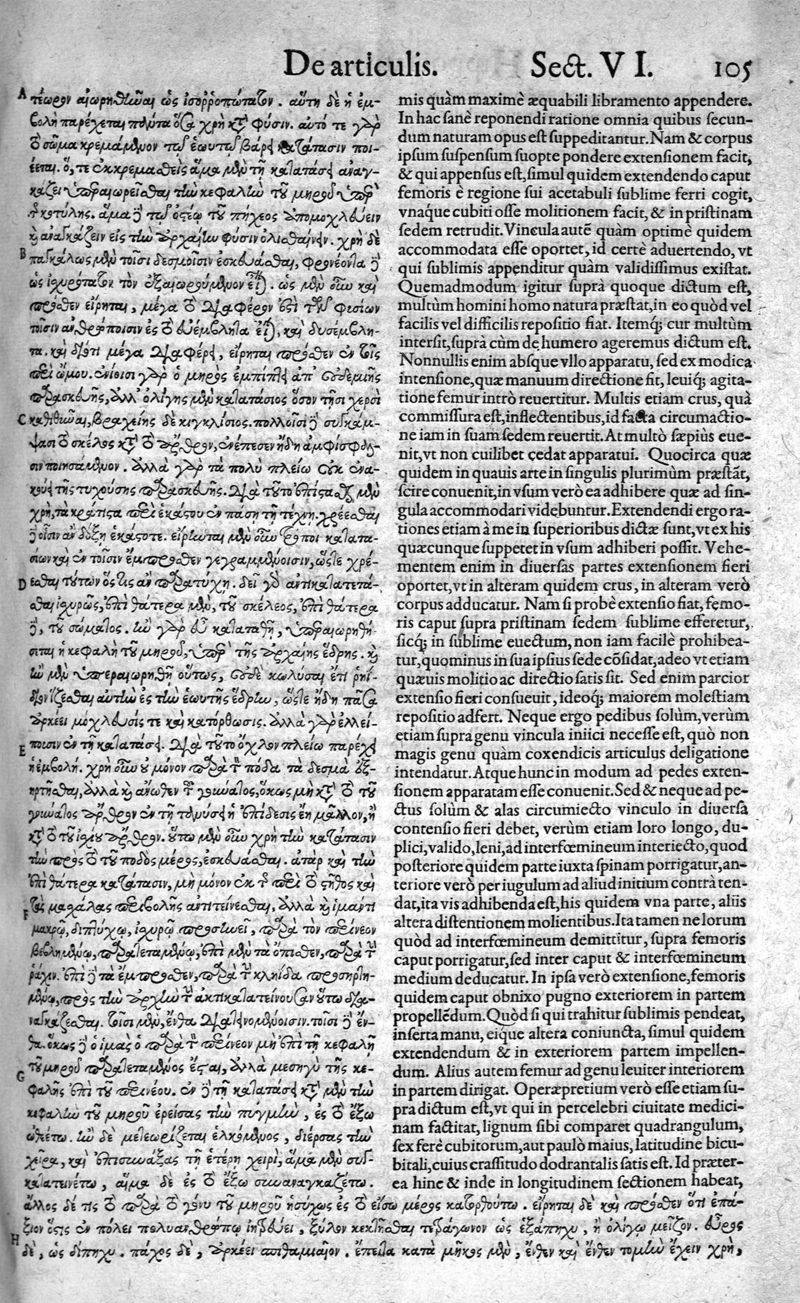 De articulis. Sect. VI. 105
A
τέωρον αἰωρηθῆναι ὡς ἰσοῤῥοπώτατον. αὕτη δὲ ἡ ἐμ-
βολὴ παρέχεται πάντα ὅσα χρὴ κατὰ φύσιν. αὐτό τε γὰρ
τὸ σῶμα κρεμάμενον τῷ ἑωυτοῦ βάρει κατάτασιν ποι-
έεται. ὅ, τε ἐκκρεμασθεὶς ἅμα μὲν τῇ κατατάσει ἀναγ-
κάζει ὑπεραιωρεῖσθαι τὴν κεφαλὴν τοῦ μηροῦ ὑπὲρ
τῆς κοτύλης. ἅμα δὲ τῷ ὀστέῳ τοῦ πήχεος ἀπομοχλεύειν
καὶ ἀναγκάζειν εἰς τὴν ἀρχαίην φύσιν ὀλισθαίνειν. χρὴ δὲ
B
παγκάλως μὲν τοῖσι δεσμοῖσιν ἐσκευάσθαι, φρονέοντα δὲ
ὡς ἰσχυρότατον τὸν ἐξαιωρεύμενον εἶναι. ὡς μὲν οὖν καὶ
πρόσθεν εἴρηται, μέγα τὸ διαφέρον ἐστὶ τῶν φυσίων
τοῖσιν ἀνθρώποισιν ἐς τὸ εὐέμβλητα εἶναι, καὶ δυσέμβλη-
τα. καὶ διότι μέγα διαφέρει, εἴρηται πρόσθεν ἐν τοῖς
περὶ ὤμου. ἐνίοισι γὰρ ὁ μηρὸς ἐμπίπτει ἀπ' οὐδεμιῆς
παρασκευῆς, ἀλλ' ὀλίγης μὲν κατατάσιος ὅσον τῇσι χερσὶ
C
κατιθῦναι, βραχείης δὲ κιγκλίσιος. πολλοῖσι δὲ συγκάμ-
ψασι τὸ σκέλος κατὰ τὸ ἄρθρον, ἐνέπεσεν ἤδη ἀμφίσφαλ-
σιν ποιησάμενον. ἀλλὰ γὰρ τὰ πολὺ πλείω οὐκ ἐνα-
κούει τῆς τυχούσης παρασκευῆς. διὰ τοῦτο ἐπίστασθαι μὲν
χρὴ, τὰ κράτιστα περὶ ἑκάστου ἐν πάσῃ τῇ τέχνῃ. χρέεσθαι
δὲ οἷσιν ἂν δόξῃ ἑκάστοτε. εἴρηνται μὲν οὖν τρόποι κατατα-
σίων καὶ ἐν τοῖσιν ἔμπροσθεν γεγραμμένοισιν, ὥστε χρέ-
D
εσθαι τούτων ὅστις ἂν παρατύχῃ. δεῖ γὰρ ἀντικατατετά-
σθαι ἰσχυρῶς, ἐπὶ θάτερα μὲν, τοῦ σκέλεος, ἐπὶ θάτερα
δὲ, τοῦ σώματος. ἢν γὰρ εὖ καταταθῇ, ὑπεραιωρηθή-
σεται ἡ κεφαλὴ τοῦ μηροῦ, ὑπὲρ τῆς ἀρχαίης ἕδρης. καὶ
ἢν μὲν ὑπεραιωρηθῇ οὕτως, οὐδὲ κωλῦσαι ἔτι ῥηί-
διον ἵζεσθαι αὐτὴν ἐς τὴν ἑωυτῆς ἕδρην, ὥστε ἤδη πᾶσα
ἀρκέει μόχλευσίς τε καὶ κατόρθωσις. ἀλλὰ γὰρ ἐλλεί-
E
πουσιν ἐν τῇ κατατάσει. διὰ τοῦτο ὄχλον πλείω παρέχει
ἡ ἐμβολή. χρὴ οὖν οὐ μόνον παρὰ τὸν πόδα τὰ δεσμὰ ἐξ-
ηρτῆσθαι, ἀλλὰ καὶ ἄνωθεν τοῦ γούνατος, ὅκως μὴ κατὰ τοῦ
γούνατος ἄρθρον ἐν τῇ τανύσει ἡ ἐπίδοσις ἔῃ μᾶλλον, ἢ
κατὰ τὸ τοῦ ἰσχίου ἄρθρον. οὕτω μὲν οὖν χρὴ τὴν κατάτασιν
τὴν πρὸς τὸ τοῦ ποδὸς μέρος, ἐσκευάσθαι. ἀτὰρ καὶ τὴν
ἐπὶ θάτερα κατάτασιν, μὴ μόνον ἐκ τῆς περὶ τὸ στῆθος καὶ
F
τὰς μασχάλας περιβολῆς ἀντιτείνεσθαι, ἀλλὰ καὶ ἱμάντι
μακρῷ, διπτύχῳ, ἰσχυρῷ προσηνεῖ, παρὰ τὸν περίνεον
βεβλημένῳ, παρατεταμένῳ, ἐπὶ μὲν τὰ ὄπισθεν, παρὰ τὴν
ῥάχιν. ἐπὶ δὲ τὰ ἔμπροσθεν, παρὰ τὴν κληῖδα προσηρτη-
μένῳ, πρὸς τὴν ἀρχὴν τὴν ἀντικατατείνουσαν οὕτω δια-
ναγκάζεσθαι. τοῖσι μὲν, ἔνθα διατεινομένοισιν. τοῖσι δὲ ἔν-
θα. ὅκως δὲ ὁ ἱμὰς ὁ παρὰ τὸν περίνεον μὴ ἐπὶ τὴν κεφαλὴν
τοῦ μηροῦ παρατεταμένος ἔσται, ἀλλὰ μεσηγὺ τῆς κε-
G
φαλῆς ἐπὶ τοῦ περινέου. ἐν δὲ τῇ κατατάσει κατὰ μὲν τὴν
κεφαλὴν τοῦ μηροῦ ἐρείσας τὴν πυγμὴν, ἐς τὸ ἔξω
ὠθείτω. ἢν δὲ μετεωρίζηται ἑλκόμενος, διέρσας τὴν
χεῖρα, καὶ ἐπισυνάψας τῇ ἑτέρῃ χειρὶ, ἅμα μὲν συγ-
κατατεινέτω, ἅμα δὲ ἐς τὸ ἔξω συναναγκαζέτω.
mis quàm maximè æquabili libramento appendere.
In hac sanè reponendi ratione omnia quibus secun-
dum naturam opus est suppeditantur. Nam & corpus
ipsum suspensum suopte pondere extensionem facit,
& qui appensus est, simul quidem extendendo caput
femoris è regione sui acetabuli sublime ferri cogit,
vnaque cubiti osse molitionem facit, & in pristinam
sedem retrudit. Vincula autē quàm optimè quidem
accommodata esse oportet, id certè aduertendo, vt
qui sublimis appenditur quàm validissimus existat.
Quemadmodum igitur suprà quoque dictum est,
multùm homini homo natura præstat, in eo quòd vel
facilis vel difficilis repositio fiat. Itemq; cur multùm
intersit, suprà cùm de humero ageremus dictum est.
Nonnullis enim absque vllo apparatu, sed ex modica
intensione, quæ manuum directione fit, leuiq; agita-
tione femur intrò reuertitur. Multis etiam crus, quà
commissura est, inflectentibus, id facta circumactio-
ne iam in suam sedem reuertit. At multò sæpius eue-
nit, vt non cuilibet cedat apparatui. Quocirca quæ
quidem in quauis arte in singulis plurimùm præstāt,
scire conuenit, in vsum verò ea adhibere quæ ad sin-
gula accommodari videbuntur. Extendendi ergo ra-
tiones etiam à me in superioribus dictæ sunt, vt ex his
quæcunque suppetet in vsum adhiberi possit. Vehe-
mentem enim in diuersas partes extensionem fieri
oportet, vt in alteram quidem crus, in alteram verò
corpus adducatur. Nam si probè extensio fiat, femo-
ris caput supra pristinam sedem sublime efferetur,
sicq; in sublime euectum, non iam facilè prohibea-
tur, quominus in sua ipsius sede cōsidat, adeo vt etiam
quæuis molitio ac directio satis sit. Sed enim parcior
extensio fieri consueuit, ideoq; maiorem molestiam
repositio adfert. Neque ergo pedibus solùm, verùm
etiam supra genu vincula iniici necesse est, quò non
magis genu quàm coxendicis articulus deligatione
intendatur. Atque hunc in modum ad pedes exten-
sionem apparatam esse conuenit. Sed & neque ad pe-
ctus solùm & alas circumiecto vinculo in diuersa
contensio fieri debet, verùm etiam loro longo, du-
plici, valido, leni, ad interfœmineum interiecto, quod
posteriore quidem parte iuxta spinam porrigatur, an-
teriore verò per iugulum ad aliud initium contrà ten-
dat, ita vis adhibenda est, his quidem vna parte, aliis
altera distentionem molientibus. Ita tamen ne lorum
quòd ad interfœmineum demittitur, supra femoris
caput porrigatur, sed inter caput & interfœmineum
medium deducatur. In ipsa verò extensione, femoris
quidem caput obnixo pugno exteriorem in partem
propellēdum. Quòd si qui trahitur sublimis pendeat,
inserta manu, eique altera coniuncta, simul quidem
extendendum & in exteriorem partem impellen-
dum. Alius autem femur ad genu leuiter interiorem
in partem dirigat. Operæpretium verò esse etiam su-
pra dictum est, vt qui in percelebri ciuitate medici-
nam factitat, lignum sibi comparet quadrangulum,
sex ferè cubitorum, aut paulò maius, latitudine bicu-
bitali, cuius crassitudo dodrantalis satis est. Id præter-
ea hinc & inde in longitudinem sectionem habeat,
ἄλλος δέ τις τὸ παρὰ τὸ γόνυ τοῦ μηροῦ ἡσύχως ἐς τὸ εἴσω μέρος κατορθούτω. εἴρηται δὲ καὶ πρόσθεν ὅτι ἐπά-
ξιον ὅστις ἐν πόλει πολυανθρώπῳ ἰητρεύει, ξύλον κεκτῆσθαι τετράγωνον ὡς ἑξάπηχυ, ἢ ὀλίγῳ μεῖζον. εὖρος
H
δὲ, ὡς δίπηχυ. πάχος δὲ, ἀρκέει σπιθαμιαῖον. ἔπειτα κατὰ μῆκος μὲν, ἔνθεν καὶ ἔνθεν τομὴν ἔχειν χρὴ,